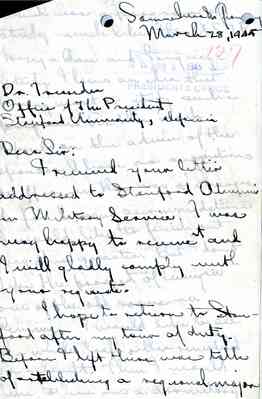 March 28, 1945
127
Dr. Tresidder
Office of the President
Stanford University, 
Dear Sir:
I received your letter
addressed to Stanford Alumni
in Military Service. I was
very happy to receive it and
I will gladly comply with
your requests.
I hope to return to Stan-
ford after my tour of duty.
Before I left there was talk
of establishing a regional major